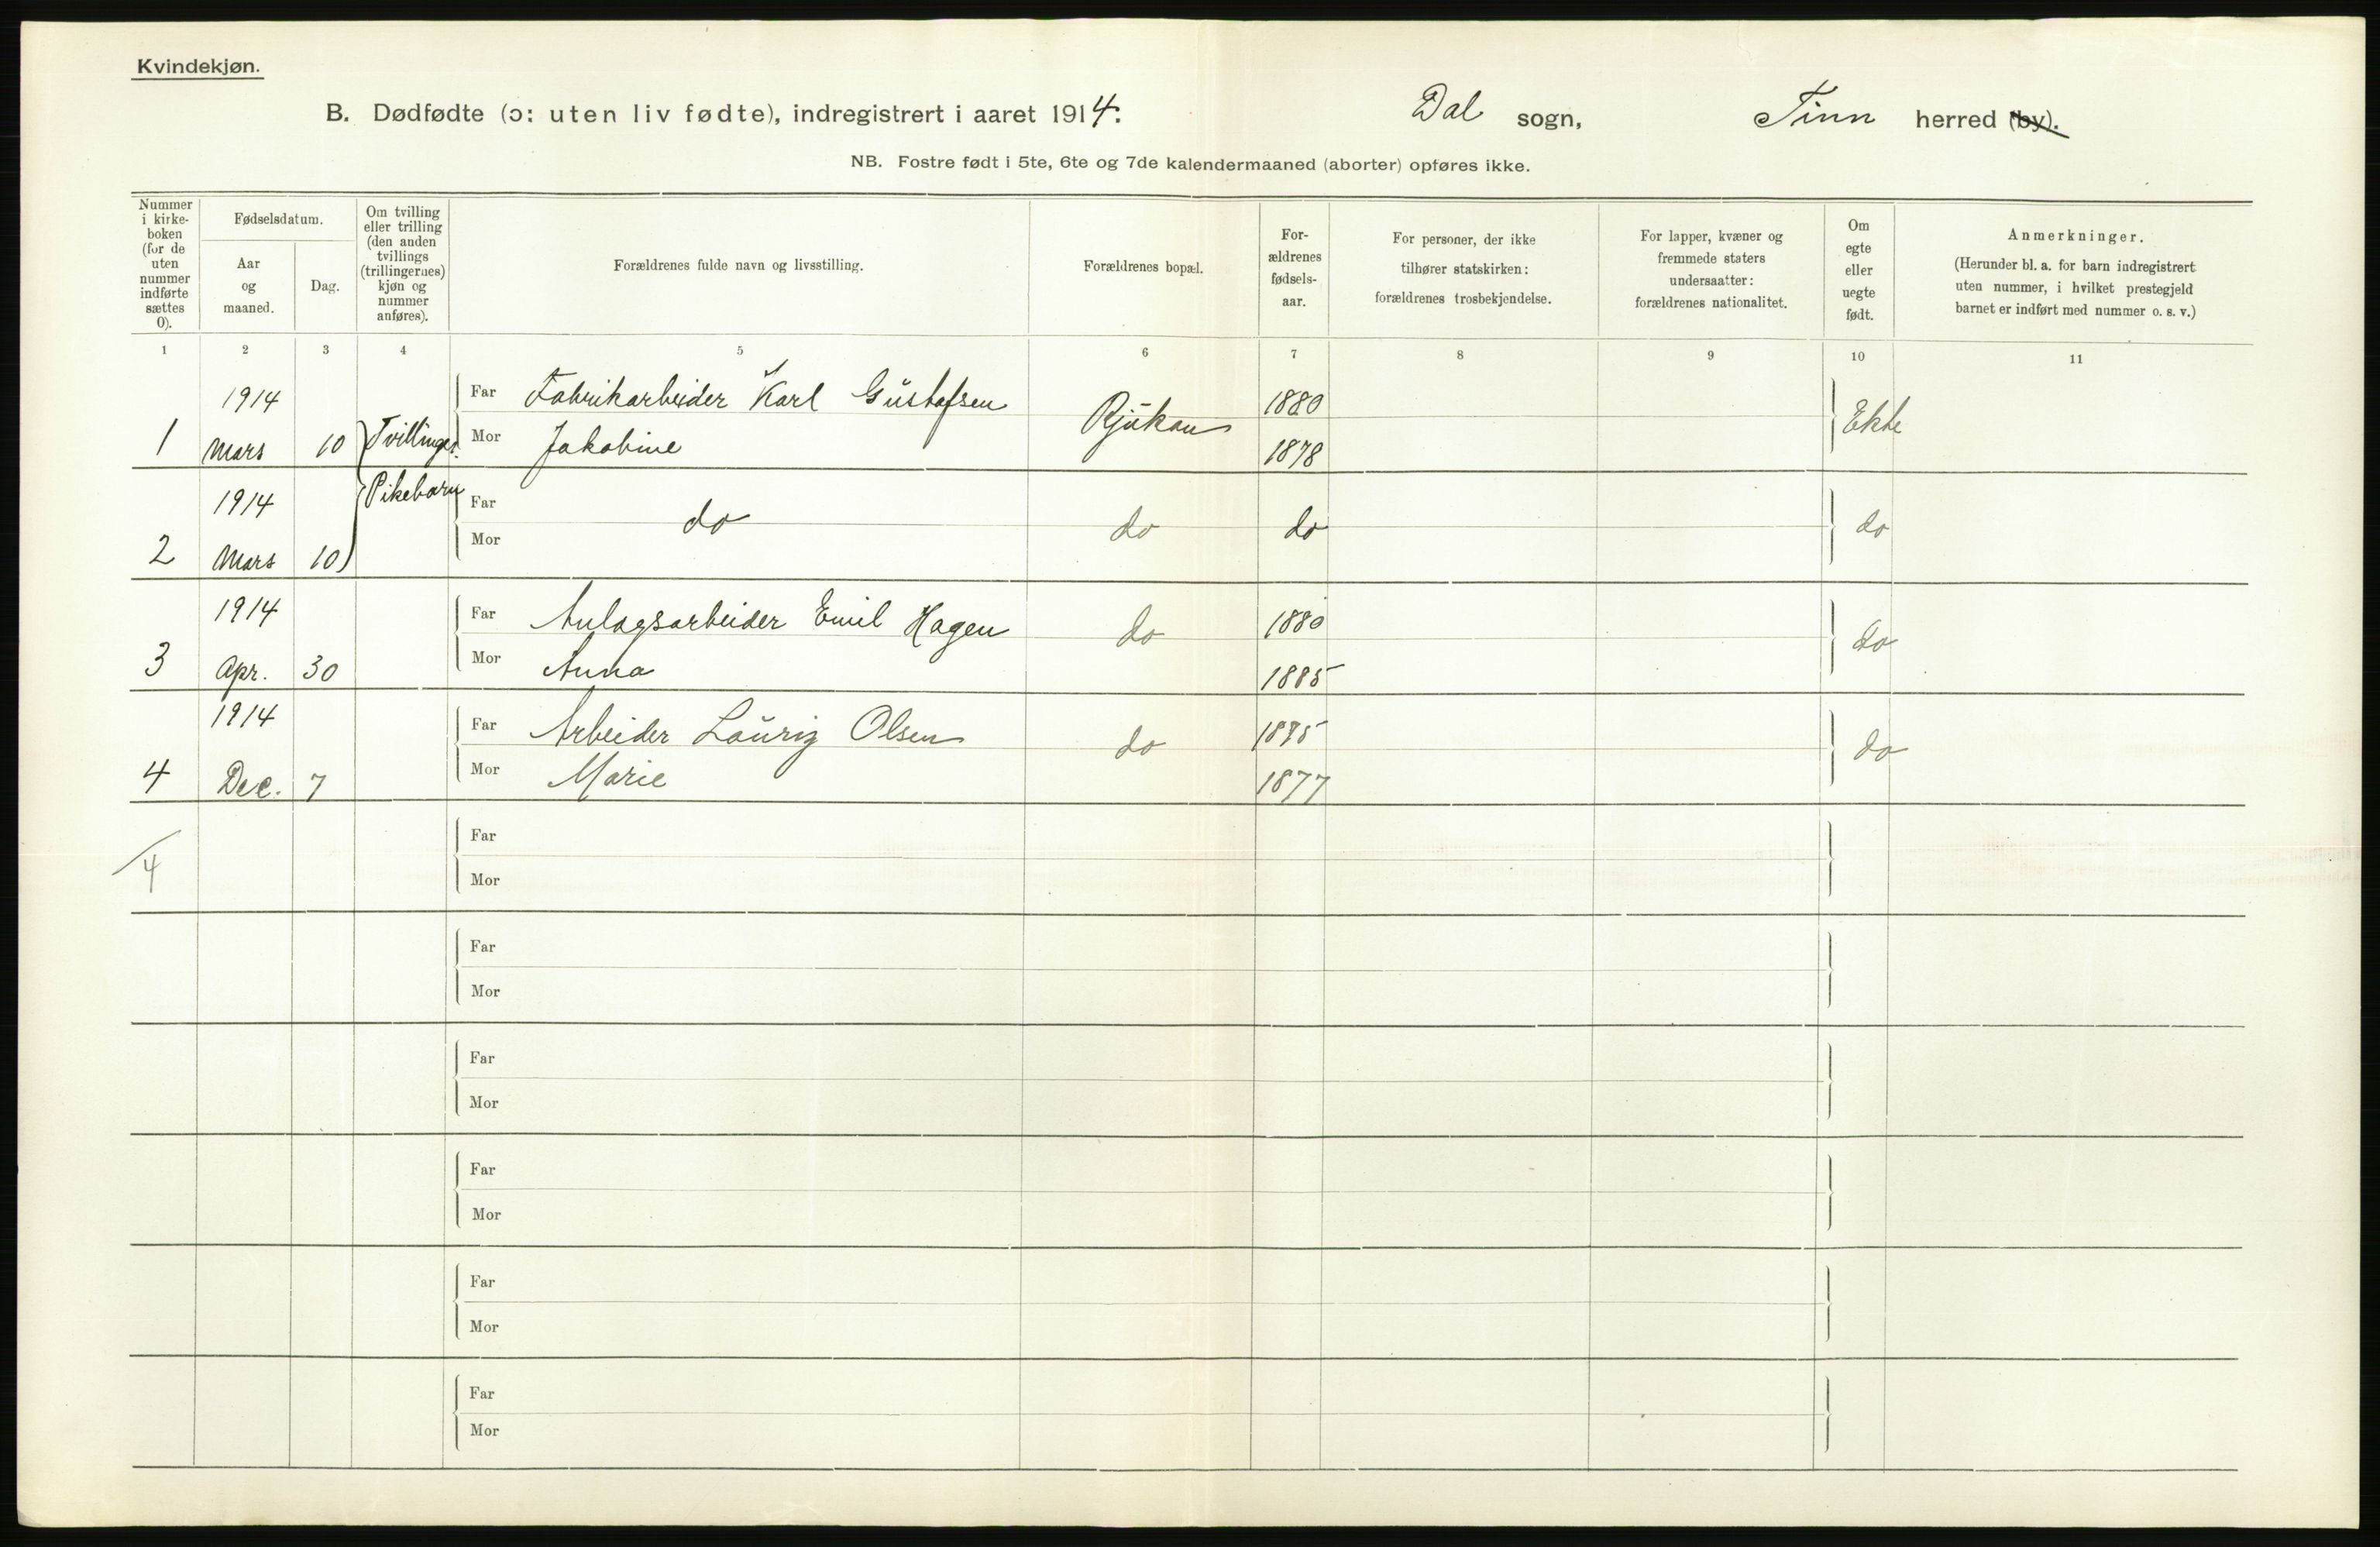 Kvindekjøn.
B. Dødfødte (ɔ: uten liv fødte), indregistrert i aaret 1914. Dal sogn, Tinn herred (by).
NB. Fostre født i 5te, 6te og 7de kalendermaaned (aborter) opføres ikke.
Nummer
i kirke-
boken
(for de
uten
nummer
indførte
sættes
0).
Fødselsdatum.
Aar
og
maaned.
Dag.
Om tvilling
eller trilling
(den anden
tvillings
(trillingernes)
kjøn og
nummer
anføres).
Forældrenes fulde navn og livsstilling.
Forældrenes bopæl.
For-
ældrenes
fødsels-
aar.
For personer, der ikke
tilhører statskirken:
forældrenes trosbekjendelse.
For lapper, kvæner og
fremmede staters
undersaatter:
forældrenes nationalitet.
Om
egte
eller
uegte
født.
Anmerkninger.
(Herunder bl. a. for barn indregistrert
uten nummer, i hvilket prestegjeld
barnet er indført med nummer o. s. v.)
1 2 3 4 5 6 7 8 9 10 11
1914 Far Fabrikarbeider Karl Gustafsen Rjukan 1880 Ekte
1 Mars 10 Tvillinger. Mor Jakobine 1878
1914 Pikebarn Far do do do do
2 Mars 10 Mor
1914 Far Anlagsarbeider Emil Hagen do 1880 do
3 Apr. 30 Mor Anna 1885
1914 Far Arbeider Lauriz Olsen do 1875 do
4 Dec. 7 Mor Marie 1877
4 Far
Mor
Far
Mor
Far
Mor
Far
Mor
Far
Mor
Far
Mor